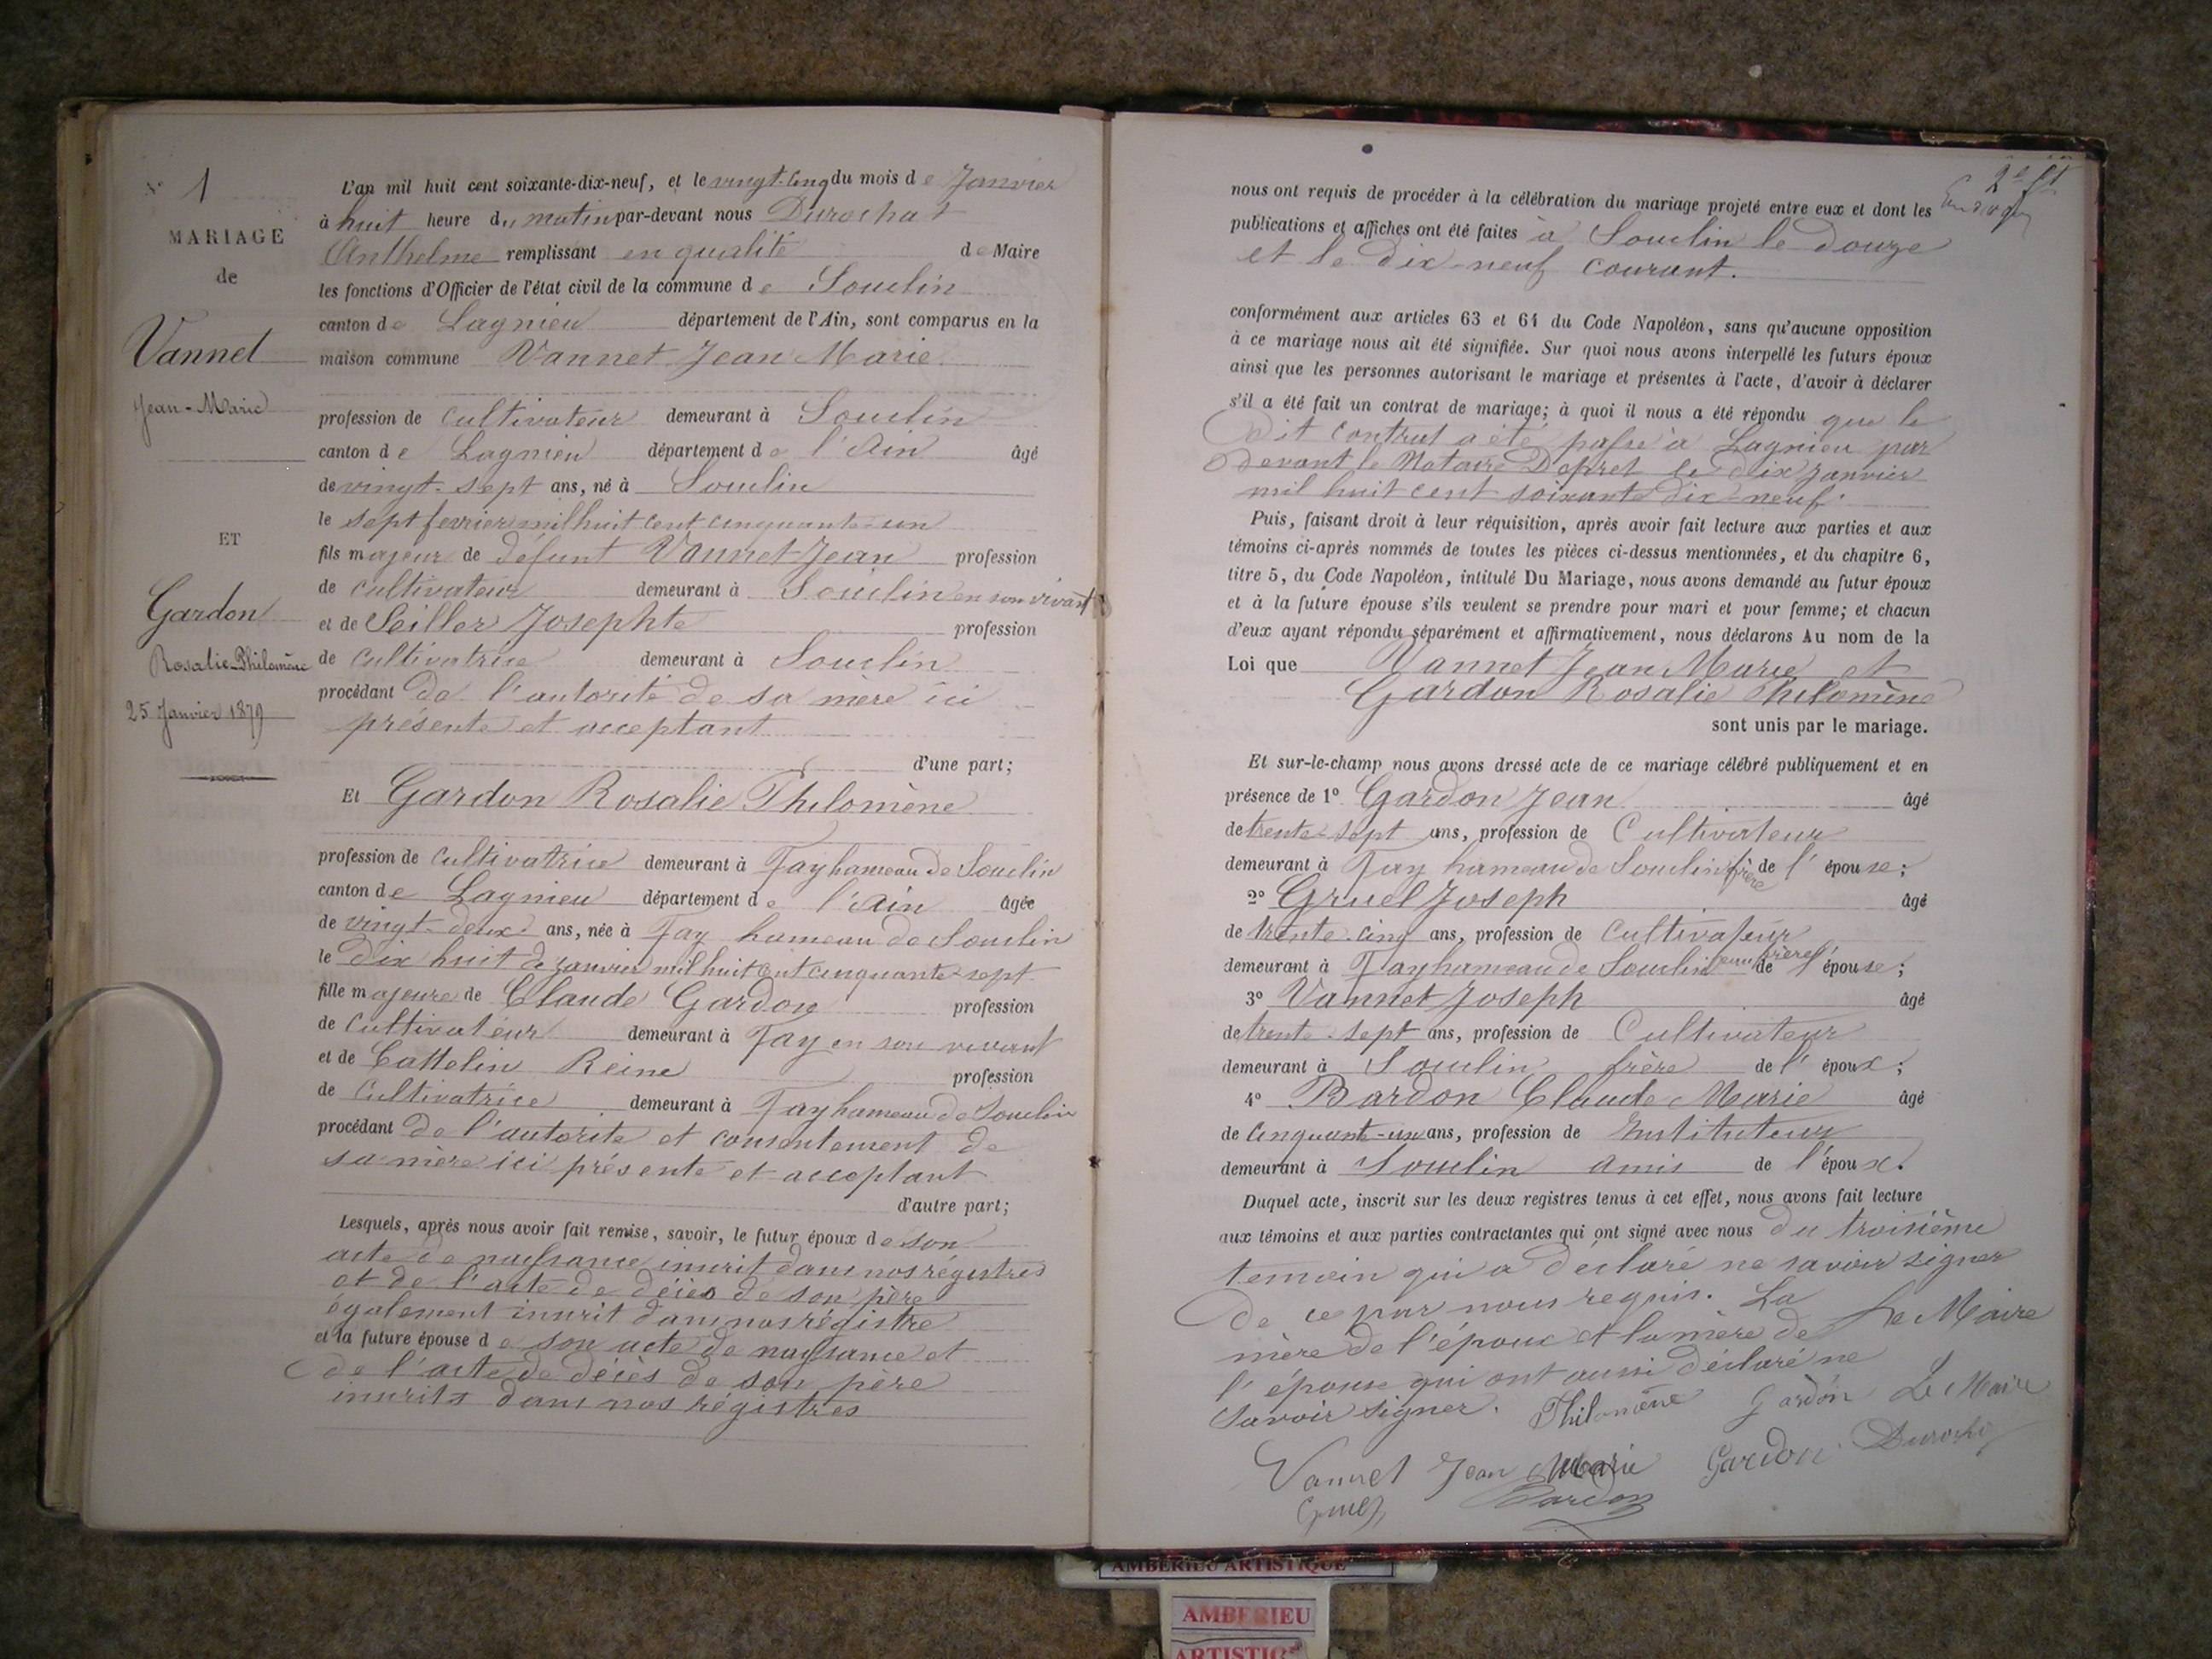 N° 1
MARIAGE
de
Vannet
Jean-Marie
ET
Gardon
Rosalie-Philomène
25 Janvier 1879
L'an mil huit cent soixante-dix-neuf, et le vingt-cinq du mois de Janvier
à huit heure du matin par-devant nous Durochat
Anthelme remplissant en qualité de Maire
les fonctions d'Officier de l'état civil de la commune de Souclin
canton de Lagnieu département de l'Ain, sont comparus en la
maison commune Vannet Jean Marie
profession de cultivateur demeurant à Souclin
canton de Lagnieu département de l'Ain âgé
de vingt-sept ans, né à Souclin
le sept fevrier mil huit cent cinquante-un
fils majeur de défunt Vannet Jean profession
de cultivateur demeurant à Souclin en son vivant
et de Seiller Josephte profession
de cultivatrice demeurant à Souclin
procédant de l'autorité de sa mère ici
présente et acceptant
d'une part;
Et Gardon Rosalie Philomène
profession de cultivatrice demeurant à Fay hameau de Souclin
canton de Lagnieu département de l'Ain âgée
de vingt-deux ans, née à Fay hameau de Souclin
le dix huit de janvier mil huit cent cinquante-sept
fille majeure de Claude Gardon profession
de cultivateur demeurant à Fay en son vivant
et de Cattelin Reine profession
de cultivatrice demeurant à Fay hameau de Souclin
procédant de l'autorité et consentement de
sa mère ici présente et acceptant
d'autre part;
Lesquels, après nous avoir fait remise, savoir, le futur époux de son
acte de naissance inscrit dans nos régistres
et de l'acte de décès de son père
également inscrit dans nos régistre
et la future épouse de son acte de naissance et
de l'acte de décès de son père
inscrits dans nos régistres
2e ft
nous ont requis de procéder à la célébration du mariage projeté entre eux et dont les
publications et affiches ont été faites à Souclin le douze
et le dix-neuf courant.
conformément aux articles 63 et 64 du Code Napoléon, sans qu'aucune opposition
à ce mariage nous ait été signifiée. Sur quoi nous avons interpellé les futurs époux
ainsi que les personnes autorisant le mariage et présentes à l'acte, d'avoir à déclarer
s'il a été fait un contrat de mariage; à quoi il nous a été répondu que le
dit contrat a été passé à Lagnieu par
devant le Notaire Depret le dix janvier
mil huit cent soixante dix-neuf.
Puis, faisant droit à leur réquisition, après avoir fait lecture aux parties et aux
témoins ci-après nommés de toutes les pièces ci-dessus mentionnées, et du chapitre 6,
titre 5, du Code Napoléon, intitulé Du Mariage, nous avons demandé au futur époux
et à la future épouse s'ils veulent se prendre pour mari et pour femme; et chacun
d'eux ayant répondu séparément et affirmativement, nous déclarons Au nom de la
Loi que Vannet Jean Marie et
Gardon Rosalie Philomène
sont unis par le mariage.
Et sur-le-champ nous avons dressé acte de ce mariage célébré publiquement et en
présence de 1° Gardon Jean âgé
de trente-sept ans, profession de Cultivateur
demeurant à Fay hameau de Souclin frère de l'épouse;
2° Gruel Joseph âgé
de trente-cinq ans, profession de Cultivateur
demeurant à Fay hameau de Souclin beau frère de l'épouse;
3° Vannet Joseph âgé
de trente-sept ans, profession de Cultivateur
demeurant à Souclin frère de l'époux;
4° Bardon Claude Marie âgé
de cinquante-un ans, profession de Instituteur
demeurant à Souclin amis de l'époux.
Duquel acte, inscrit sur les deux registres tenus à cet effet, nous avons fait lecture
aux témoins et aux parties contractantes qui ont signé avec nous du troisième
temoin qui a déclaré ne savoir signer
de ce par nous requis. La
mère de l'époux et la mère de Le Maire
l'épouse qui ont aussi déclaré ne
savoir signer. Philomène Gardon Le Maire
Vannet Jean Marie Gardon Durochat
Gruel Bardon
AMBERIEU ARTISTIQUE
AMBERIEU
ARTISTIQ